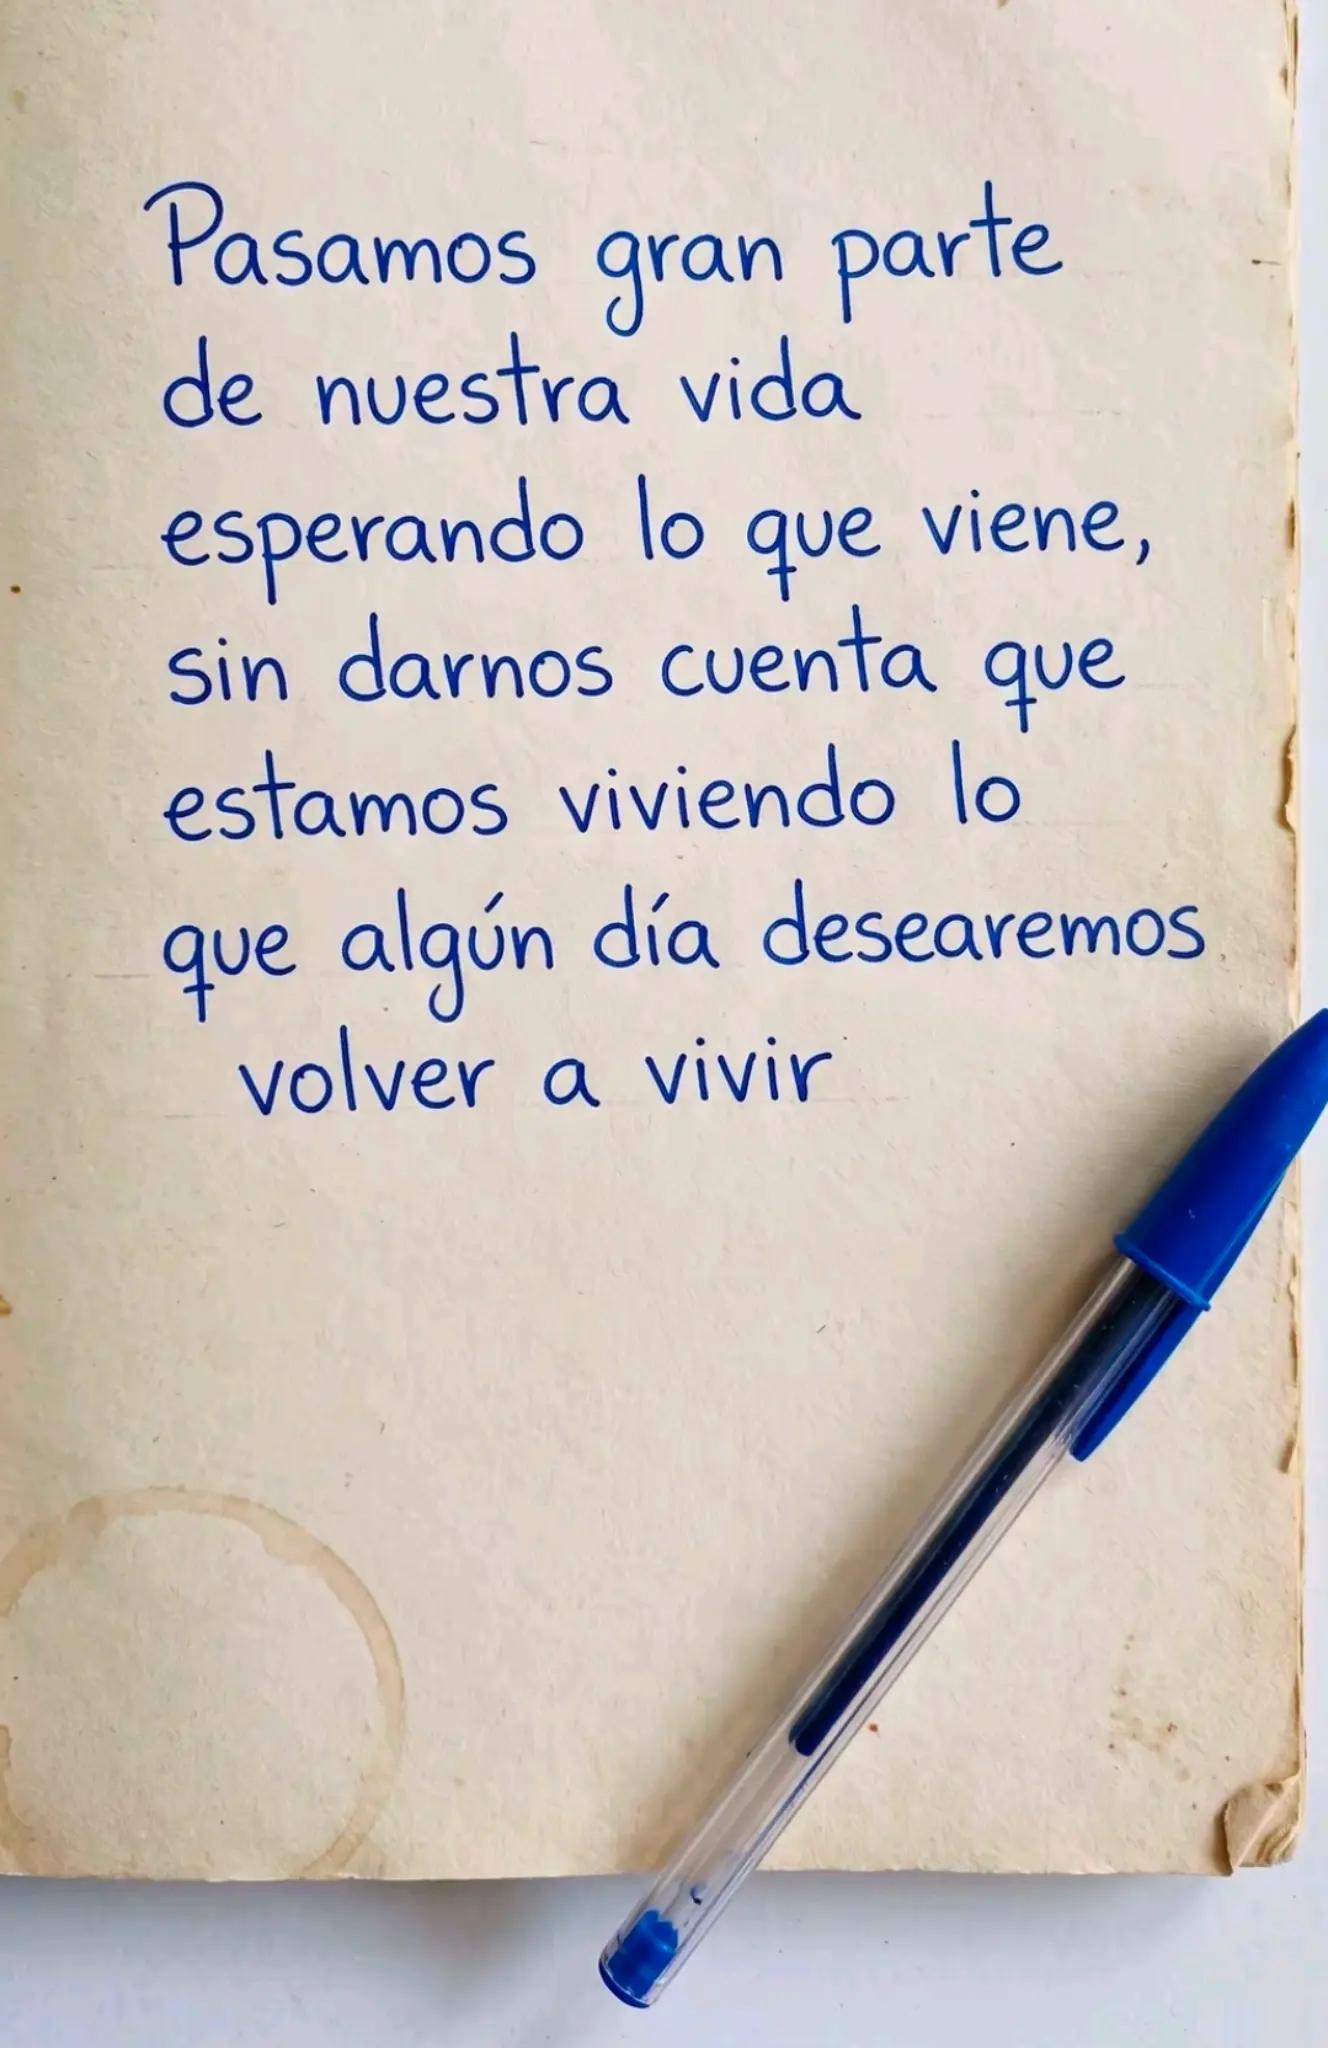 Pasamos gran parte
de nuestra vida
esperando lo que viene,
sin darnos cuenta que
estamos viviendo lo
que algún día desearemos
volver a vivir